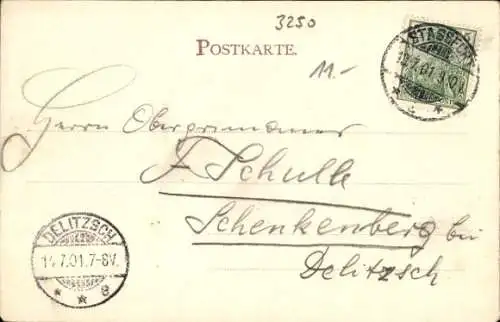 3250
POSTKARTE.
11.-
STASSFURT
Herrn Oberprimaner
F. Schulle
Schenkenberg bei
Delitzsch
DELITZSCH
14.7.01.7-8V.
* * e